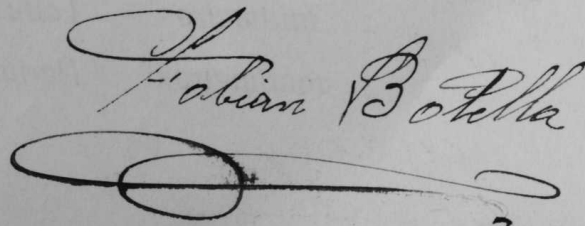 Fabian Botella